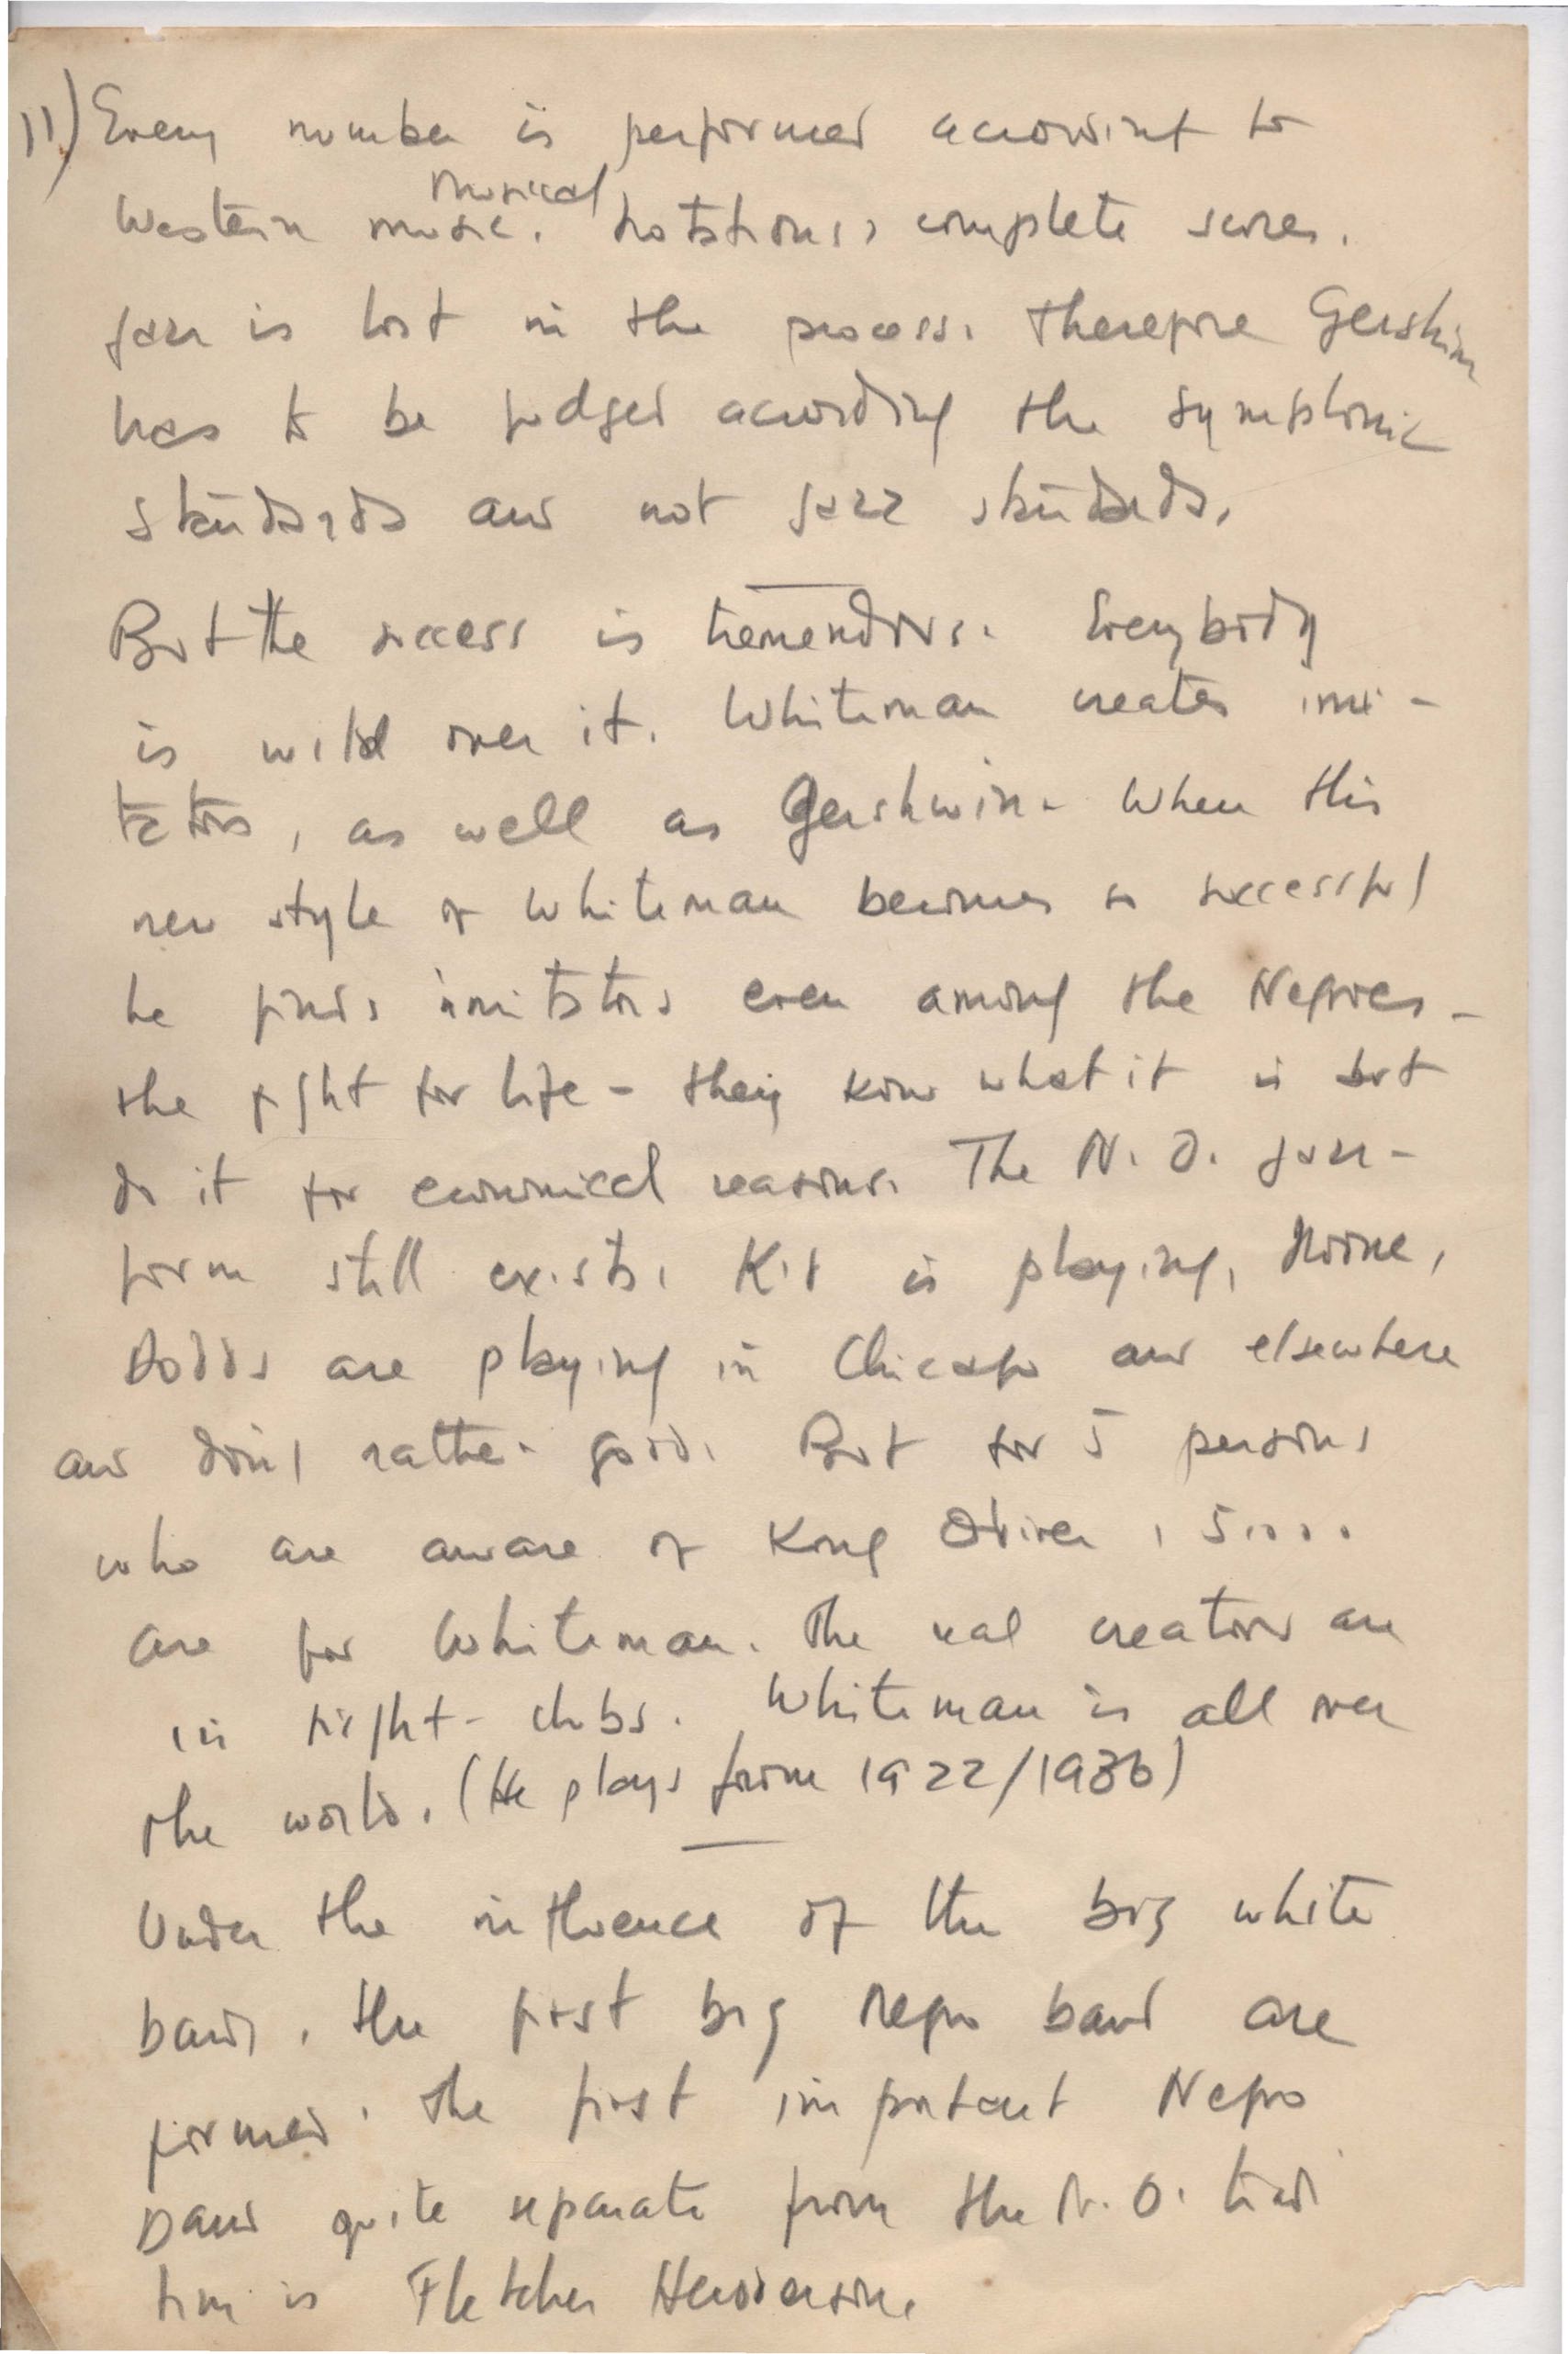 11) Every number is performed according to
musical
Western music. notations, complete scores.
Jazz is lost in the process. Therefore Gershwin
has to be judged according the symphonic
standards and not jazz standards.
But the success is tremendous. Everybody
is wild over it. Whiteman creates imi-
tators, as well as Gershwin. When this
new style of Whiteman becomes so successful
he finds imitators even among the Negroes -
the fight for life - they know what it is but
do it for economical reasons. The N. O. jazz-
form still exists, Kid is playing, Noone,
Dodds are playing in Chicago and elsewhere
and doing rather good. But for 5 persons
who are aware of King Oliver, 5....
are for Whiteman. The real creators are
in night-clubs. Whiteman is all over
the world. (He plays from 1922/1936)
Under the influence of the big white
bands, the first big Negro band are
formed. The first important Negro
band quite separate from the N. O. tradi
tion is Fletcher Henderson.